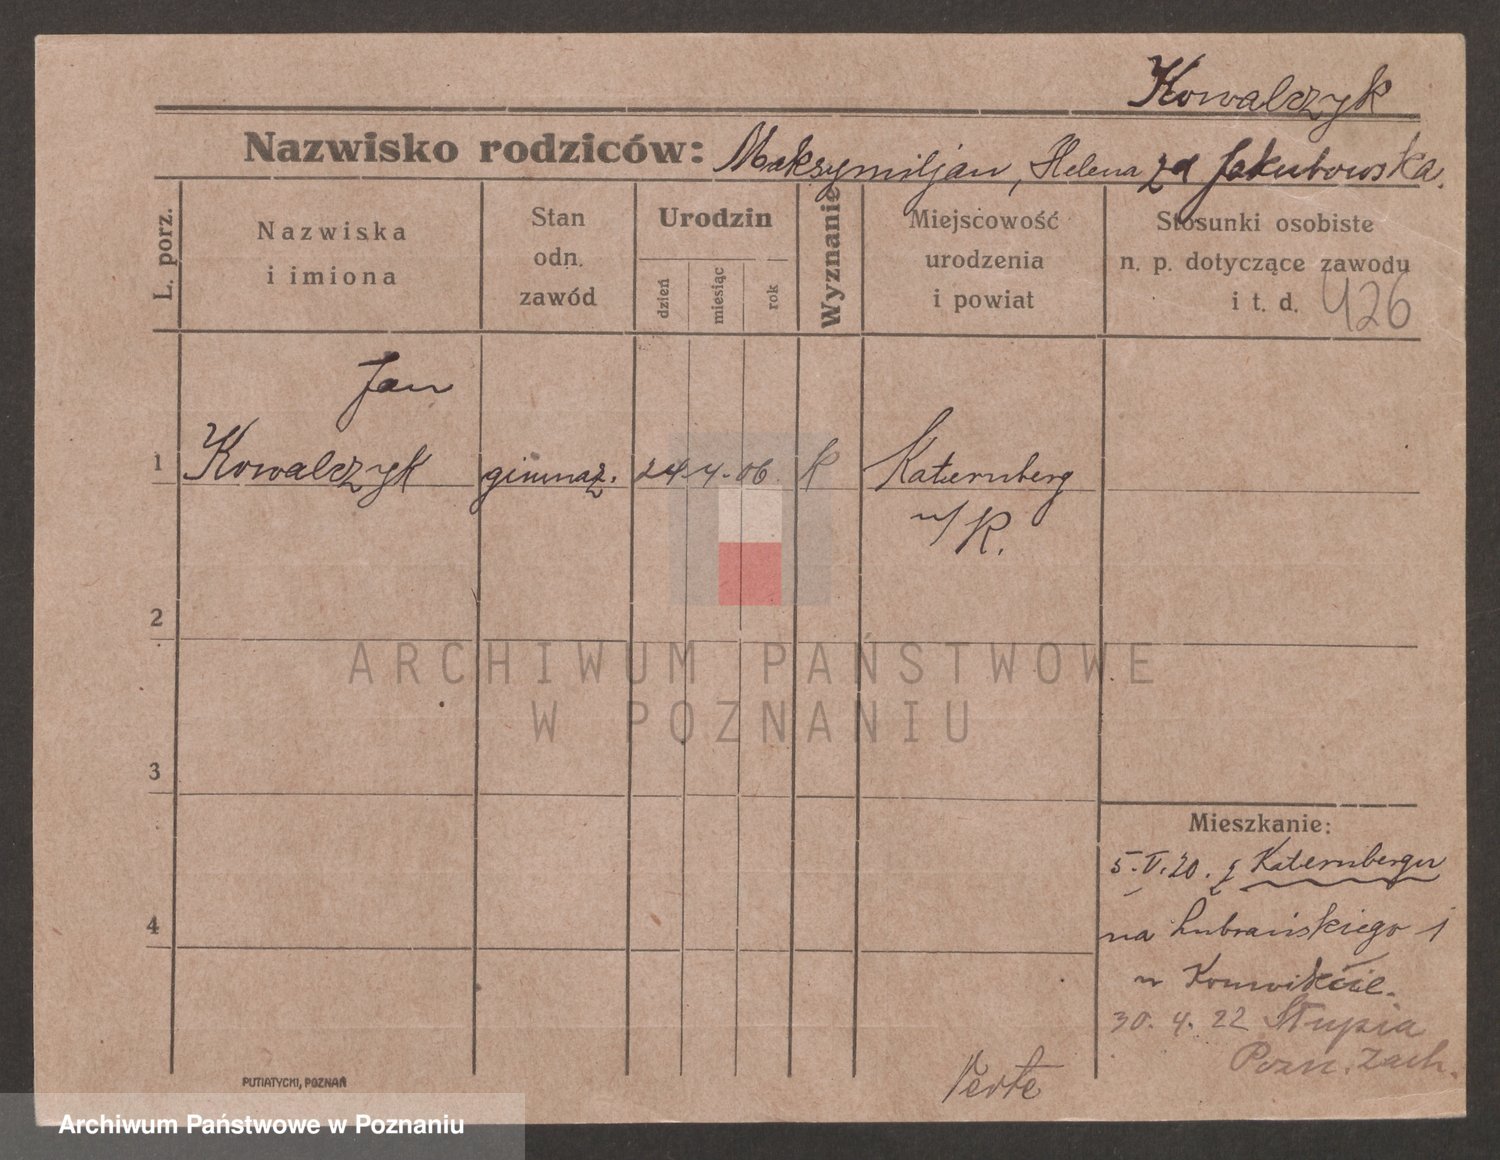 Kowalczyk
Nazwisko rodziców: Maksymiljan, Helena zd Jakubowska.
L. porz.
Nazwiska i imiona
Stan odn. zawód
Urodzin
dzień
miesiąc
rok
Wyznanie
Miejscowość urodzenia i powiat
Stosunki osobiste n. p. dotyczące zawodu i t. d.
426
Jan
1 Kowalczyk gimnaz. 24. 4. 06 K Katernberg
n/K.
2
3
4
ARCHIWUM PAŃSTWOWE
W POZNANIU
Mieszkanie:
5. V. 20. z Katernbergu
na Lubrańskiego 1
w Konwikcie.
30. 4. 22 Słupia
Pozn. Zach.
Verte
PUTIATYCKI, POZNAŃ
Archiwum Państwowe w Poznaniu